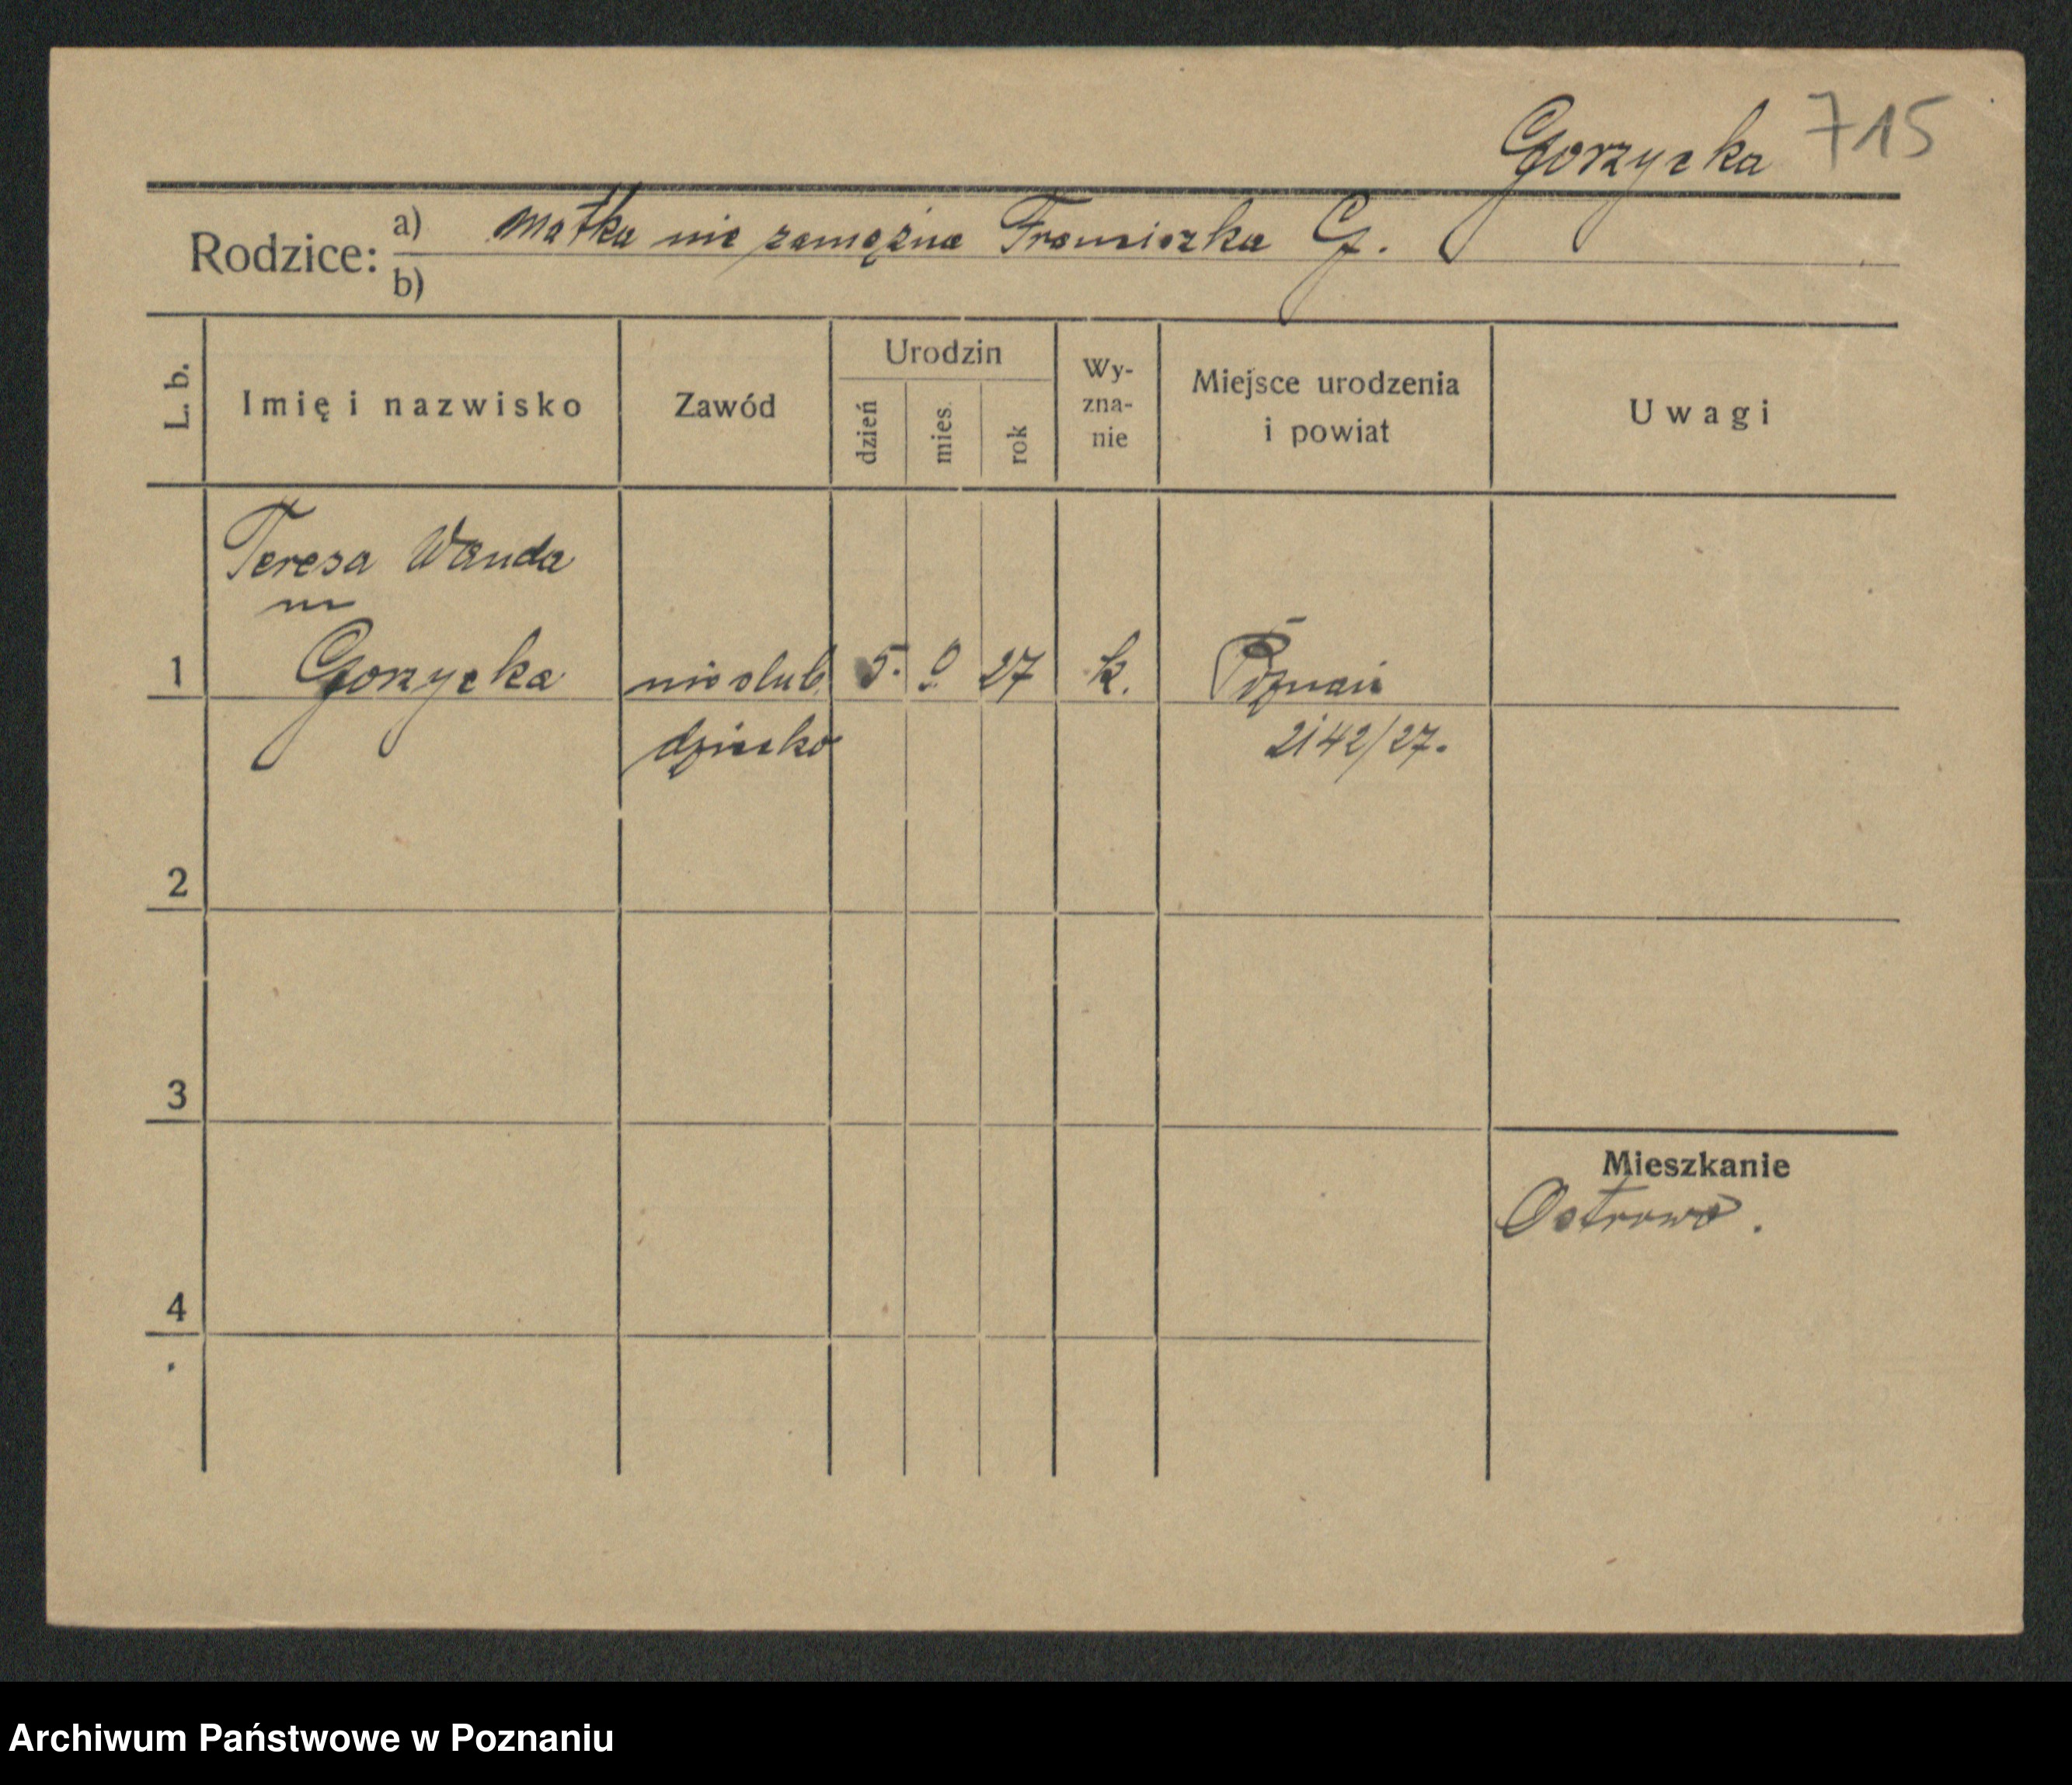 Gorzycka 715
Rodzice: a) matka nie zamężna Franciszka G.
b)
L. b.
Imię i nazwisko
Zawód
Urodzin
dzień
mies.
rok
Wy-
zna-
nie
Miejsce urodzenia
i powiat
Uwagi
Teresa Wanda
1 Gorzycka nieślub. 5. 9. 27 k. Poznań
dziecko 2142/27.
2
3
Mieszkanie
Ostrowo.
4
Archiwum Państwowe w Poznaniu